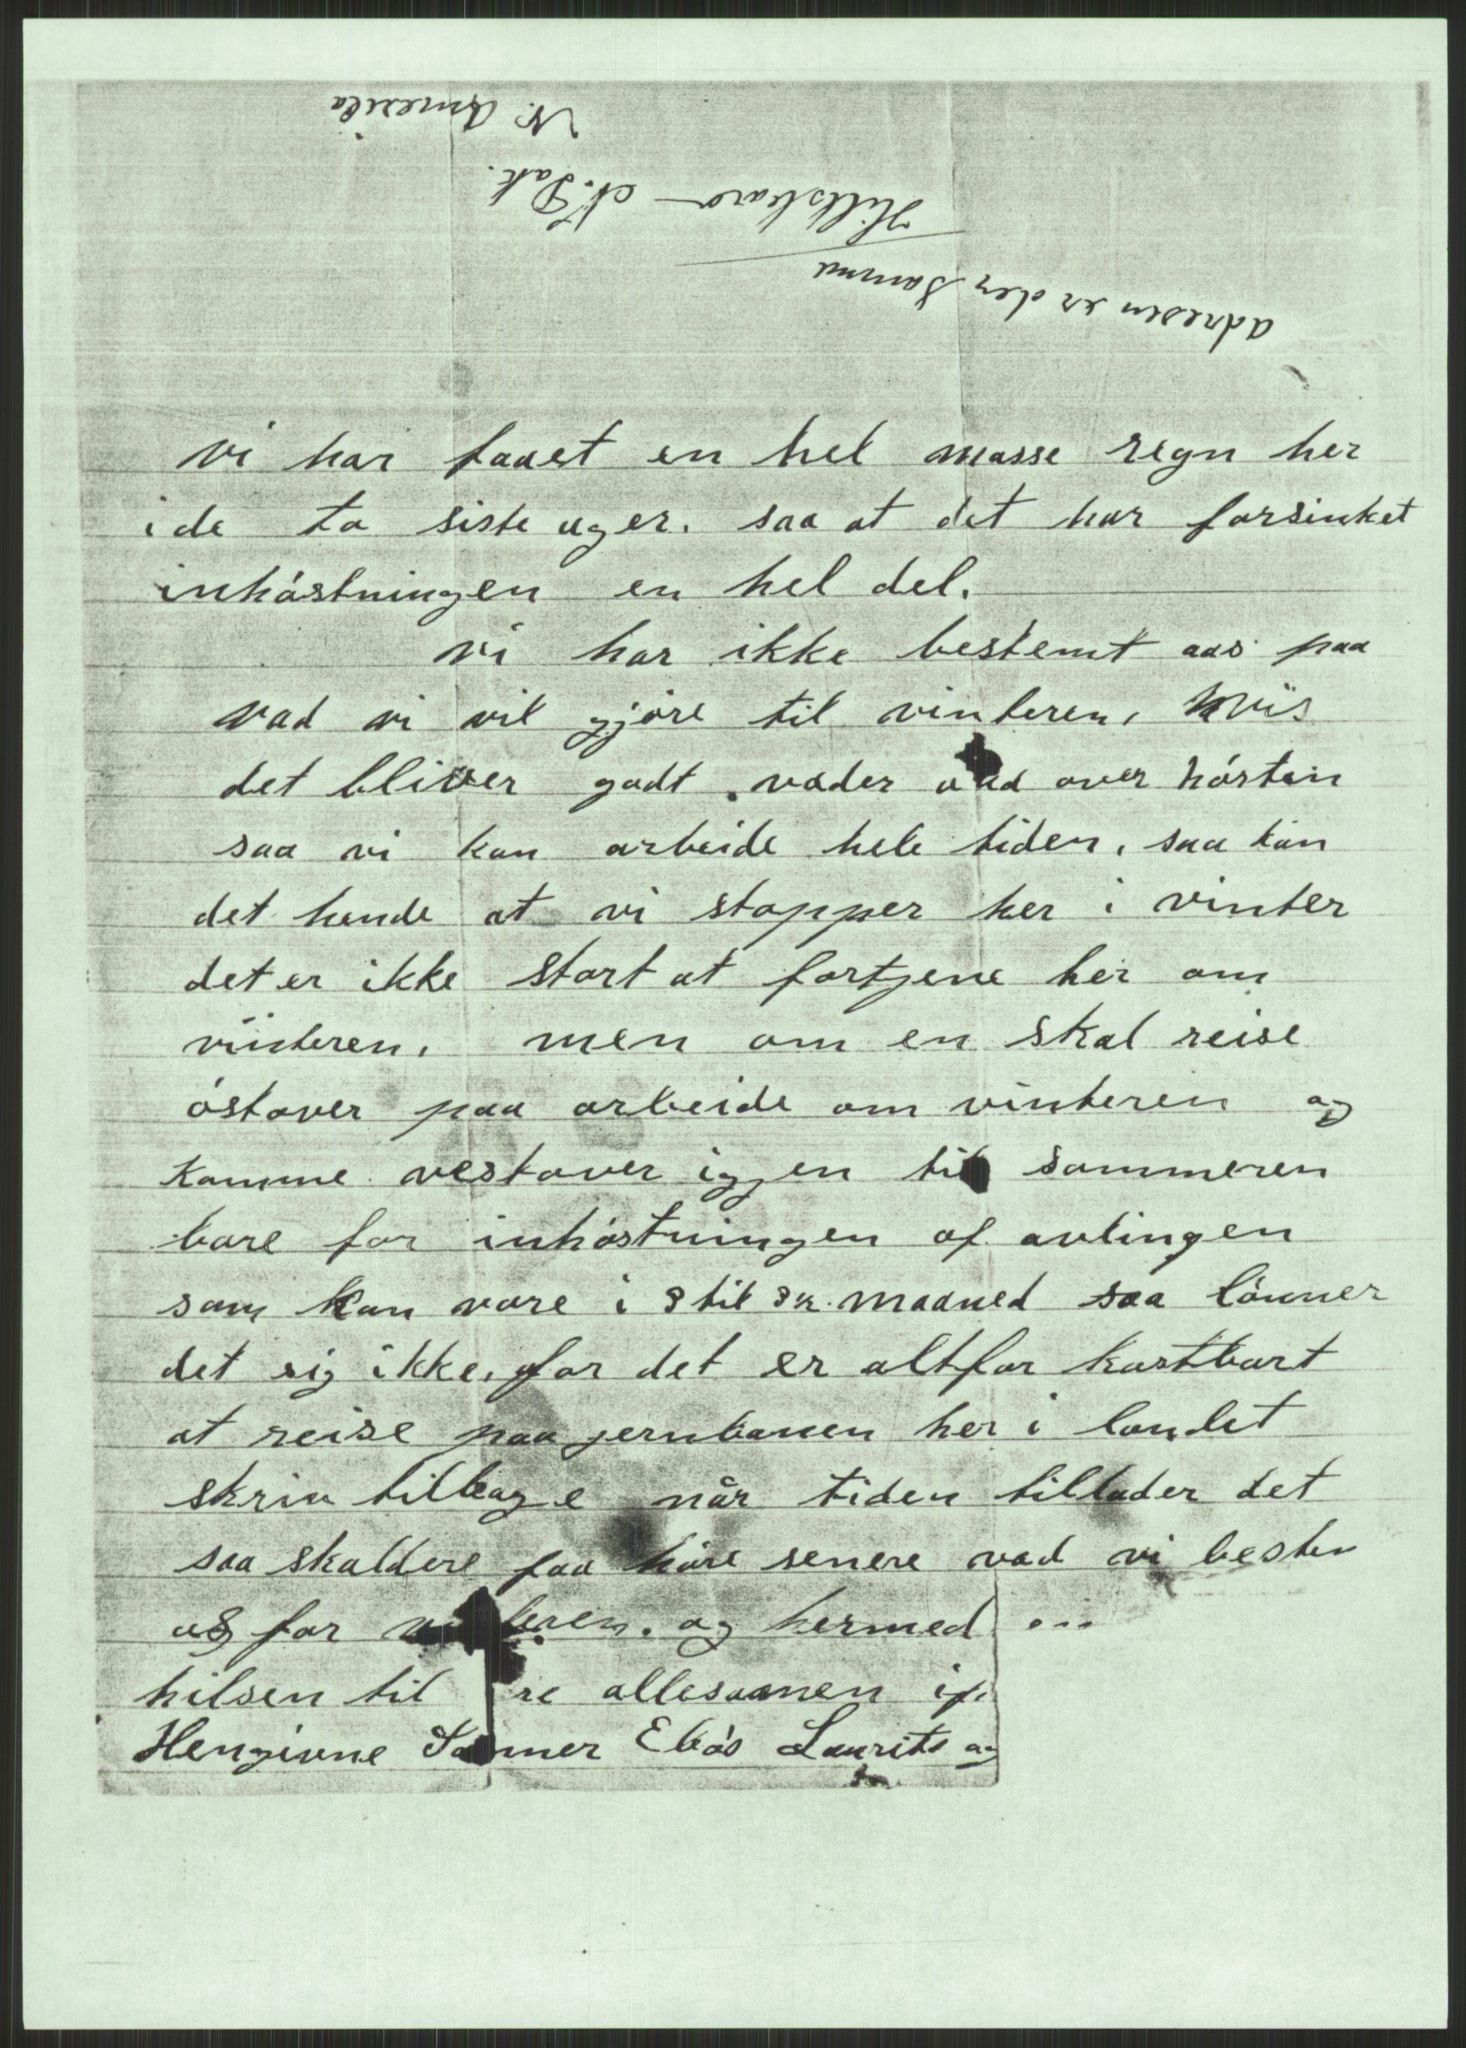 adresen er den samme
Hillsboro N. Dak.
N. Amerika
vi har faaet en hel masse regn her
i de to siste uger. saa at det har forsinket
inhóstningen en hel del.
vi har ikke bestemt aas paa
vad vi vil gjóre til vinteren, hvis
det bliver godt vader over hósten
saa vi kan arbeide hele tiden, saa kan
det hende at vi stopper her i vinter
det er ikke stort at fortjene her om
vinteren, men om en skal reise
óstover paa arbeide om vinteren og
komme vestover iggen til sommeren
bare for inhóstningen af avlingen
som kan vare i 3 til maaned saa lónner
det sig ikke, for det er altfor kostbart
at reise paa jernbanen her i landet
skriv tilbage når tiden tillader det
saa skal dere faa hóre senere vad vi bestem
os for vinteren. og hermed ...
hilsen til re allesamen
Hengivne Sónner Ebós Laurits og